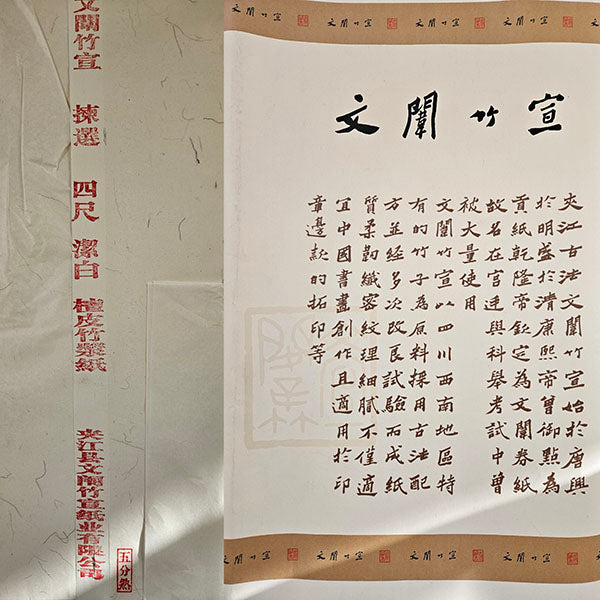 文闈竹宣 文闈竹宣
文闈竹宣
夾江古法文闈竹宣始於唐興
於明盛於清康熙帝曾御點為
貢紙乾隆帝欽定為文闈卷紙
故名在宮廷與科舉考試中曾
被大量使用
文闈竹宣以四川西南地區特
有的竹子為原料採用古法配
方並經多次改良試驗而成紙
質柔韌纖密紋理細膩不僅適
宜中國書畫創作且適用於印
章邊款的拓印等
文闈竹宣 文闈竹宣
文闈竹宣 揀選 四尺 潔白 檀皮竹漿紙 夹江县文闱竹宣纸业有限公司
五分熟